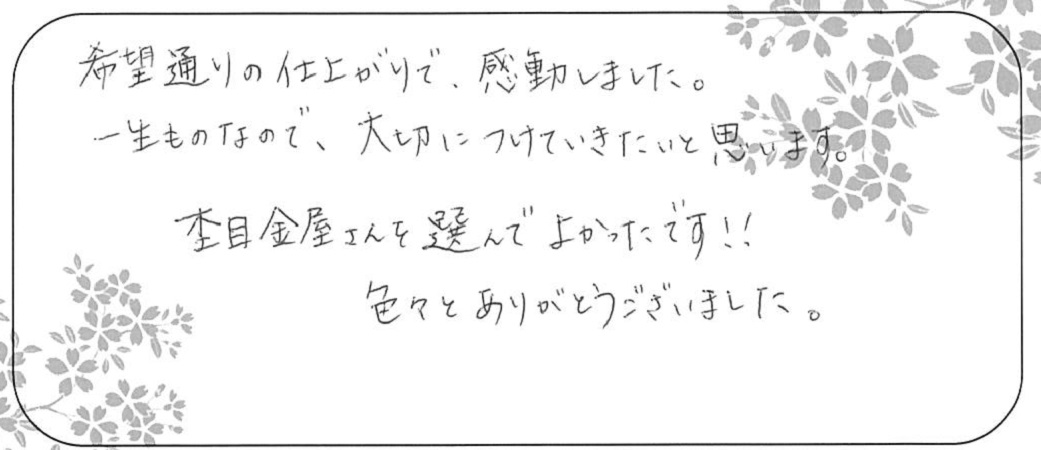 希望通りの仕上がりで、感動しました。
一生ものなので、大切につけていきたいと思います。
杢目金屋さんを選んでよかったです!!
色々とありがとうございました。